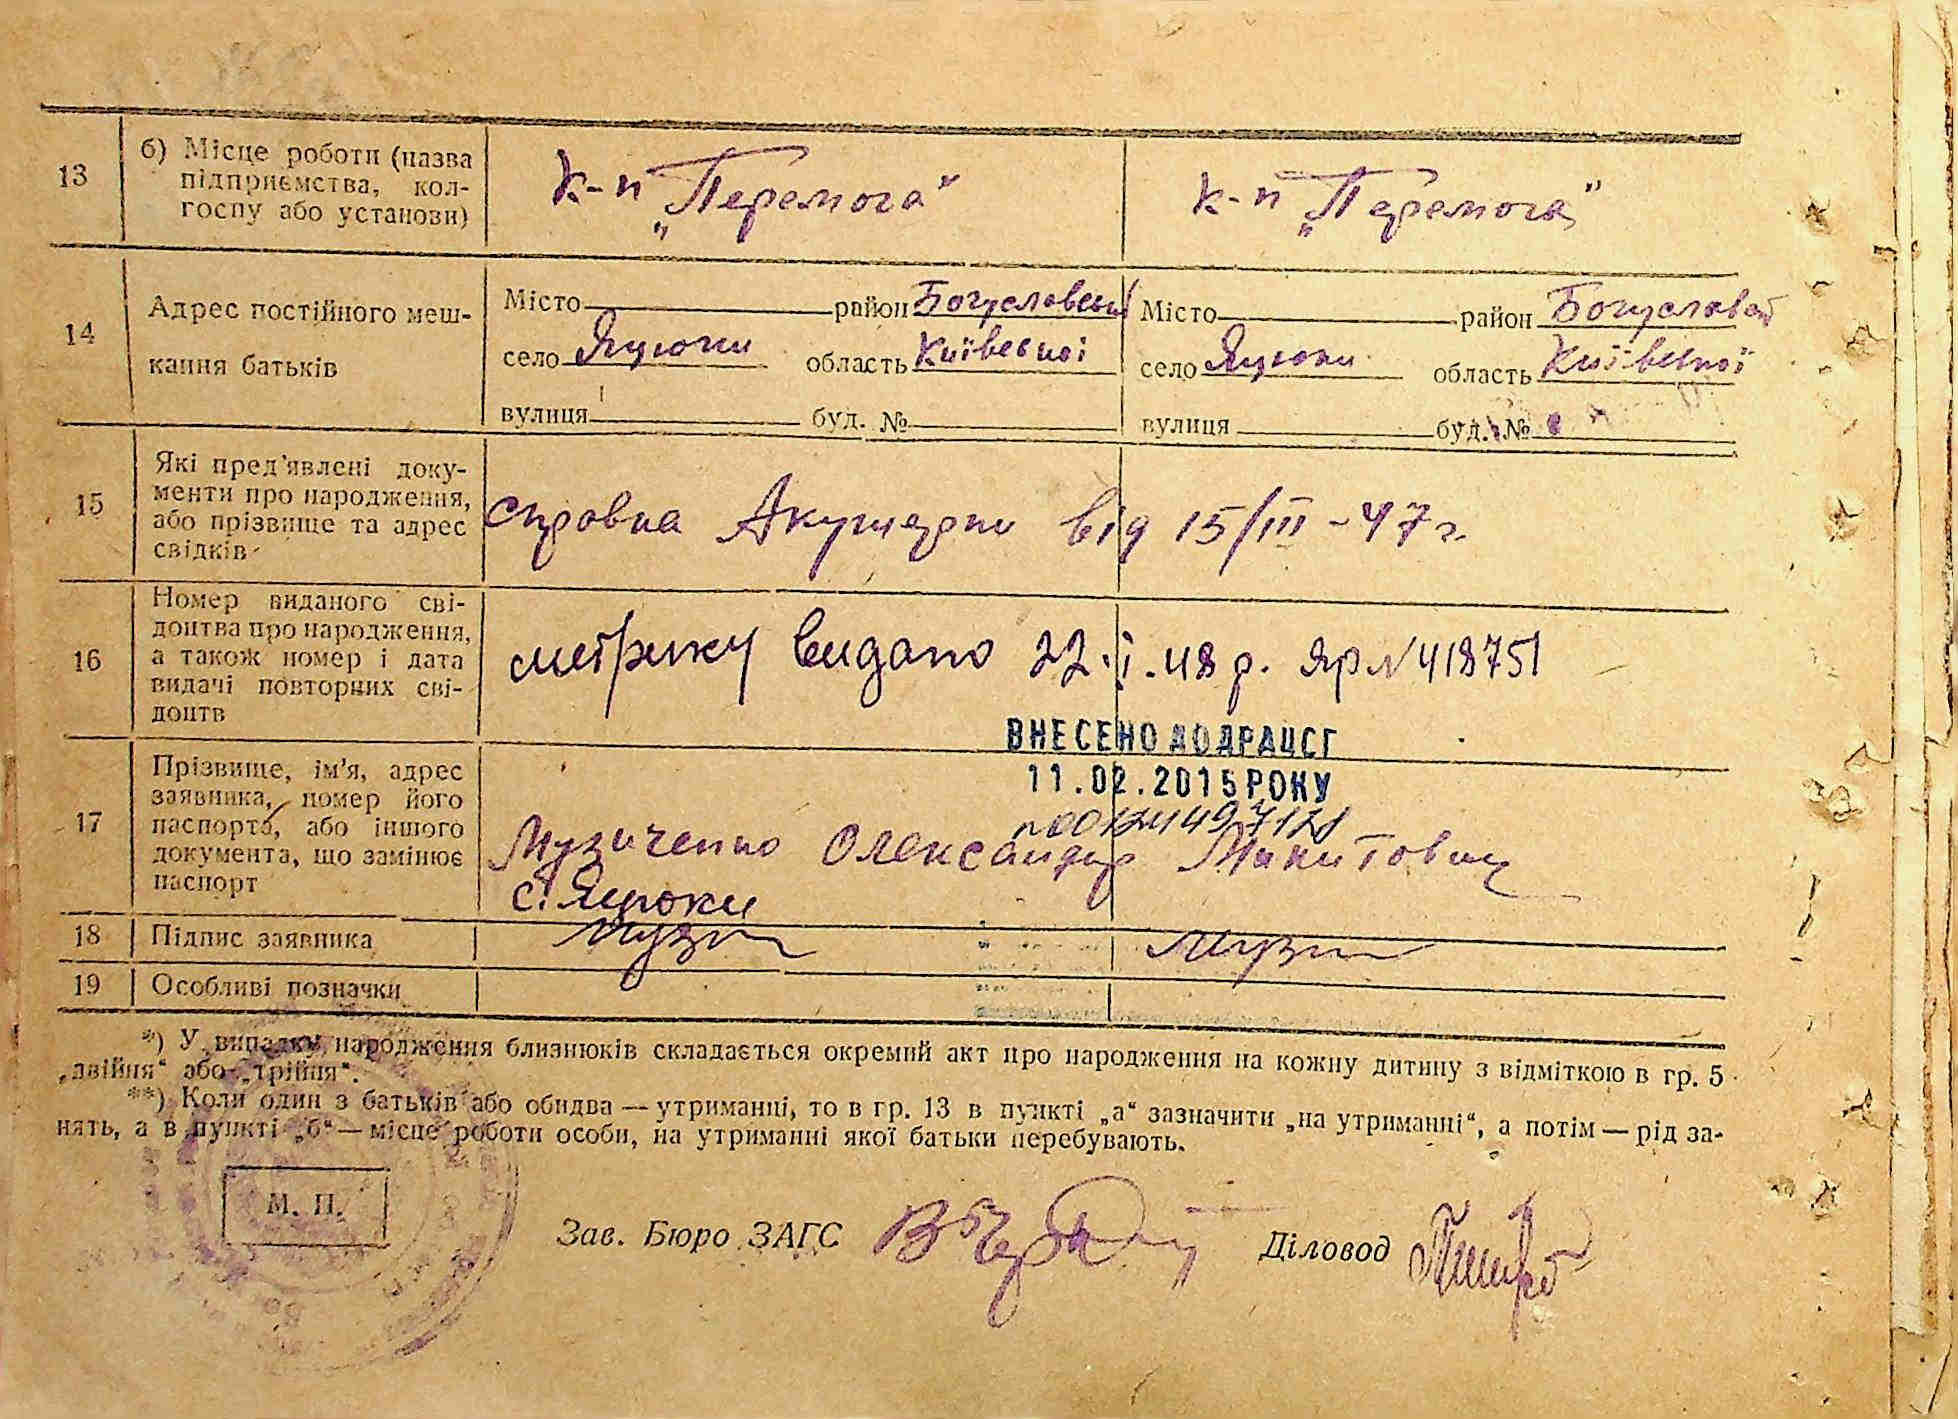 13
б) Місце роботи (назва
підприємства, кол-
госпу або установи)
к-п „Перемога“
к-п „Перемога“
14
Адрес постійного меш-
кання батьків
Місто район Богуславський
село Яцюки область Київської
вулиця буд. №
Місто район Богуславський
село Яцюки область Київської
вулиця буд. №
15
Які пред'явлені доку-
менти про народження,
або прізвище та адрес
свідків
справка Акушерки від 15/III-47 г.
16
Номер виданого сві-
доцтва про народження,
а також номер і дата
видачі повторних сві-
доцтв
метрику видано 22.I.48 р. Яр № 418751
ВНЕСЕНО ДО ДРАЦСГ
11.02.2015 РОКУ
17
Прізвище, ім'я, адрес
заявника, номер його
паспорта, або іншого
документа, що замінює
паспорт
Музиченко Олександр Микитович
с. Яцюки
18
Підпис заявника
Музи
Музи
19
Особливі позначки
*) У випадку народження близнюків складається окремий акт про народження на кожну дитину з відміткою в гр. 5
„двійня“ або „трійня“.
**) Коли один з батьків або обидва — утриманці, то в гр. 13 в пункті „а“ зазначити „на утриманні“, а потім — рід за-
нять, а в пункті „б“ — місце роботи особи, на утриманні якої батьки перебувають.
М. П.
Зав. Бюро ЗАГС
Діловод